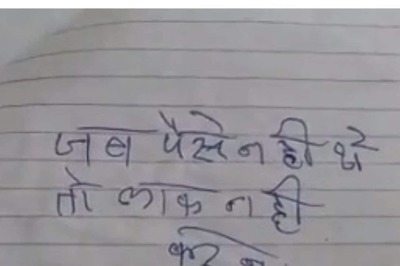 जब पैसे नही थे
तो लाक नही